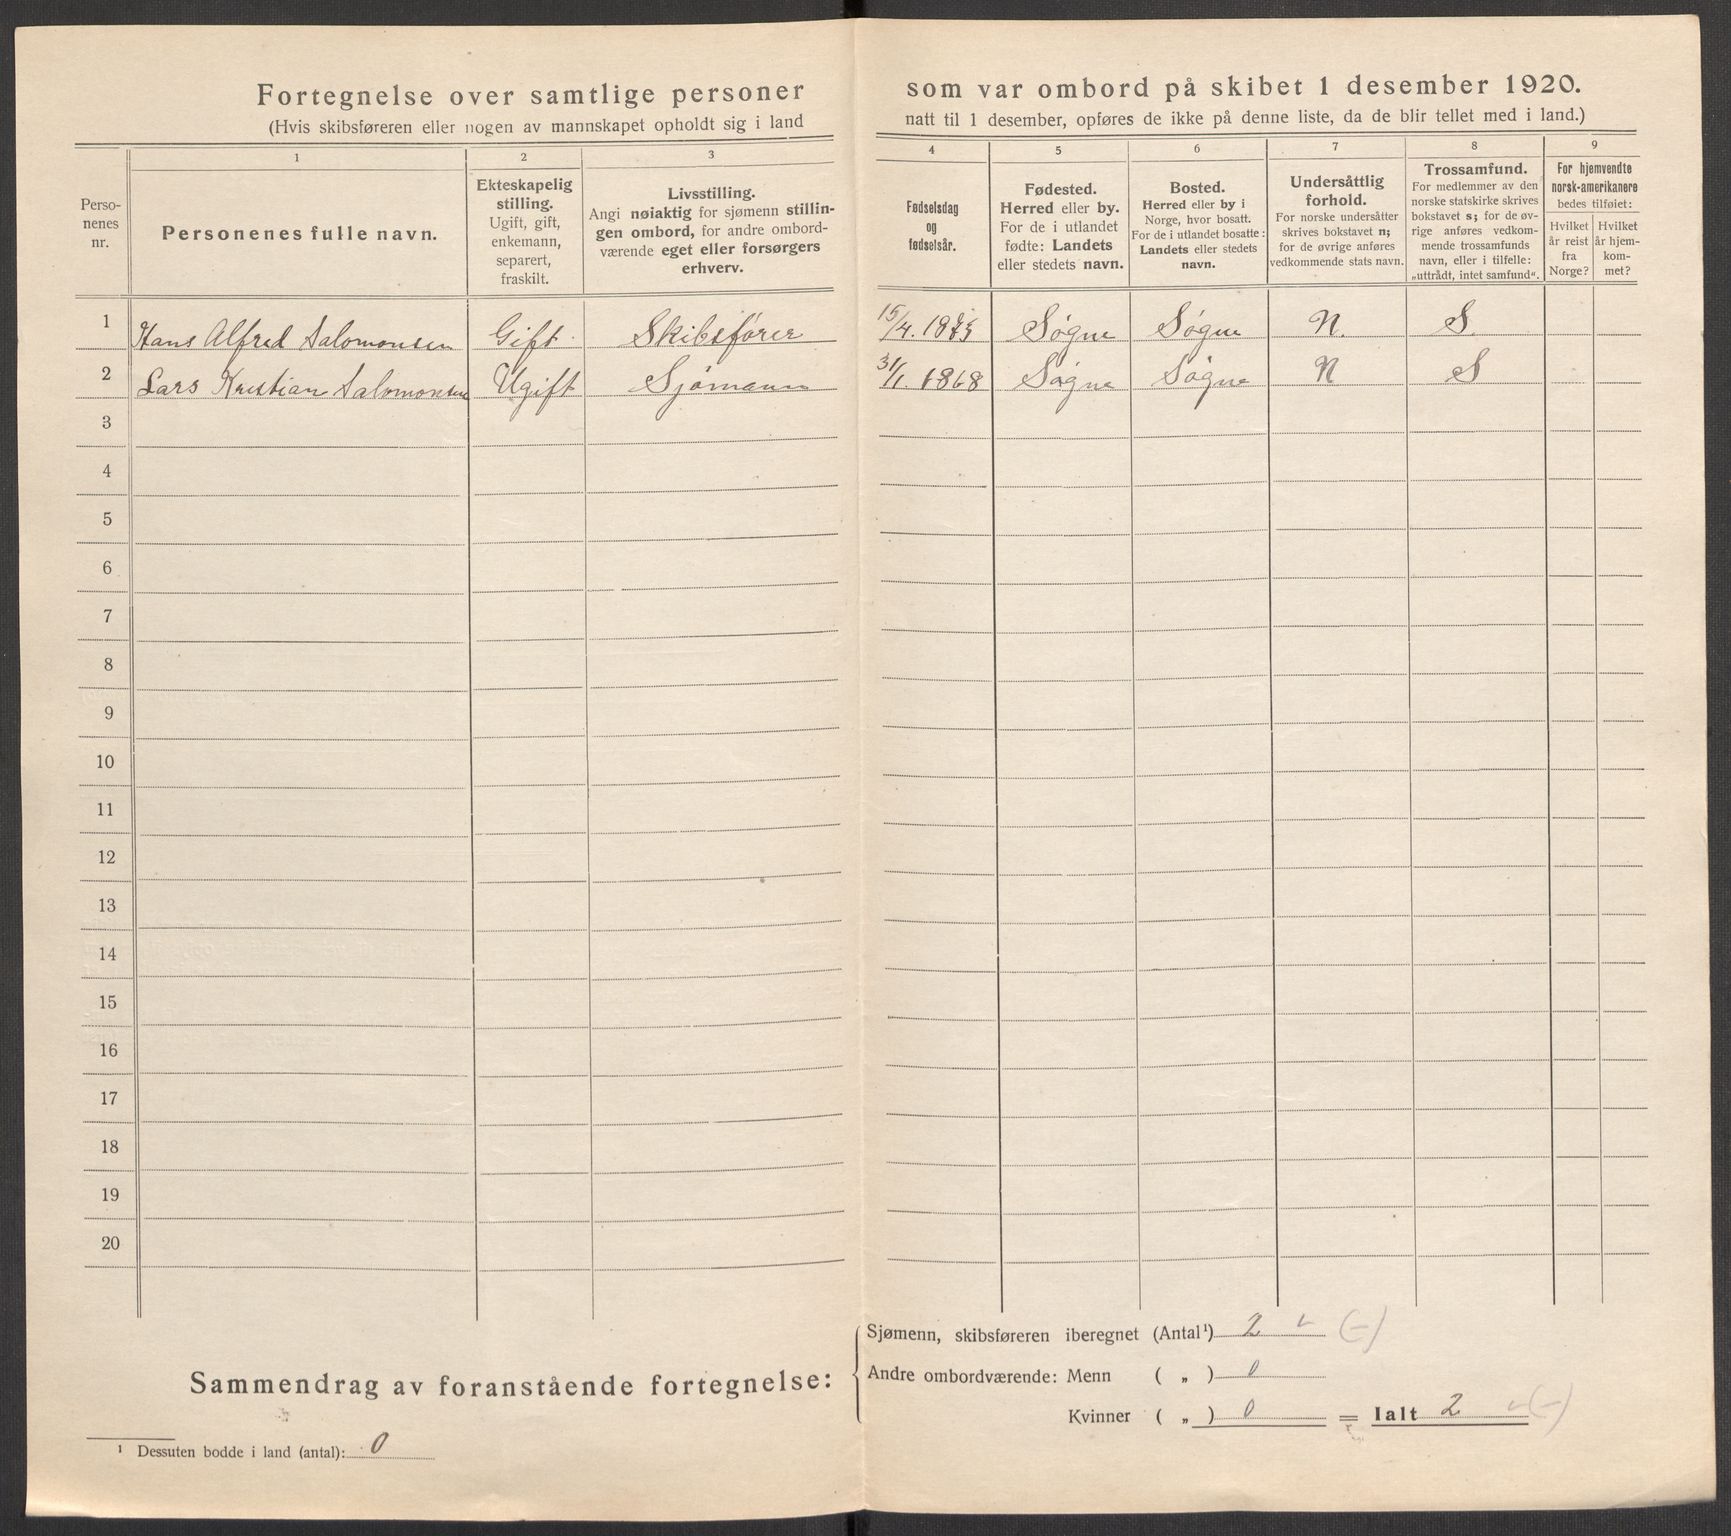 Fortegnelse over samtlige personer som var ombord på skibet 1 desember 1920.
(Hvis skibsføreren eller nogen av mannskapet opholdt sig i land natt til 1 desember, opføres de ikke på denne liste, da de blir tellet med i land.)
Perso-
nenes
nr.
1
Personenes fulle navn.
2
Ekteskapelig
stilling.
Ugift, gift,
enkemann,
separert,
fraskilt.
3
Livsstilling.
Angi nøiaktig for sjømenn stillin-
gen ombord, for andre ombord-
værende eget eller forsørgers
erhverv.
4
Fødselsdag
og
fødselsår.
5
Fødested.
Herred eller by.
For de i utlandet
fødte: Landets
eller stedets navn.
6
Bosted.
Herred eller by i
Norge, hvor bosatt.
For de i utlandet bosatte:
Landets eller stedets
navn.
7
Undersåttlig
forhold.
For norske undersåtter
skrives bokstavet n;
for de øvrige anføres
vedkommende stats navn.
8
Trossamfund.
For medlemmer av den
norske statskirke skrives
bokstavet s; for de øv-
rige anføres vedkom-
mende trossamfunds
navn, eller i tilfelle:
„uttrådt, intet samfund".
9
For hjemvendte
norsk-amerikanere
bedes tilføiet:
Hvilket
år reist
fra
Norge?
Hvilket
år hjem-
kom-
met?
1 Hans Alfred Salomonsen Gift Skibsfører 15/4. Søgne Søgne N. S.
2 Lars Kristian Salomonsen Ugift Sjømann 31/1. 1868 Søgne Søgne N S
3
4
5
6
7
8
9
10
11
12
13
14
15
16
17
18
19
20
Sammendrag av foranstående fortegnelse:
Sjømenn, skibsføreren iberegnet (Antal¹) 2 (-)
Andre ombordværende: Menn ( „ ) 0
Kvinner ( „ ) 0 = Ialt 2 (-)
¹ Dessuten bodde i land (antal): 0